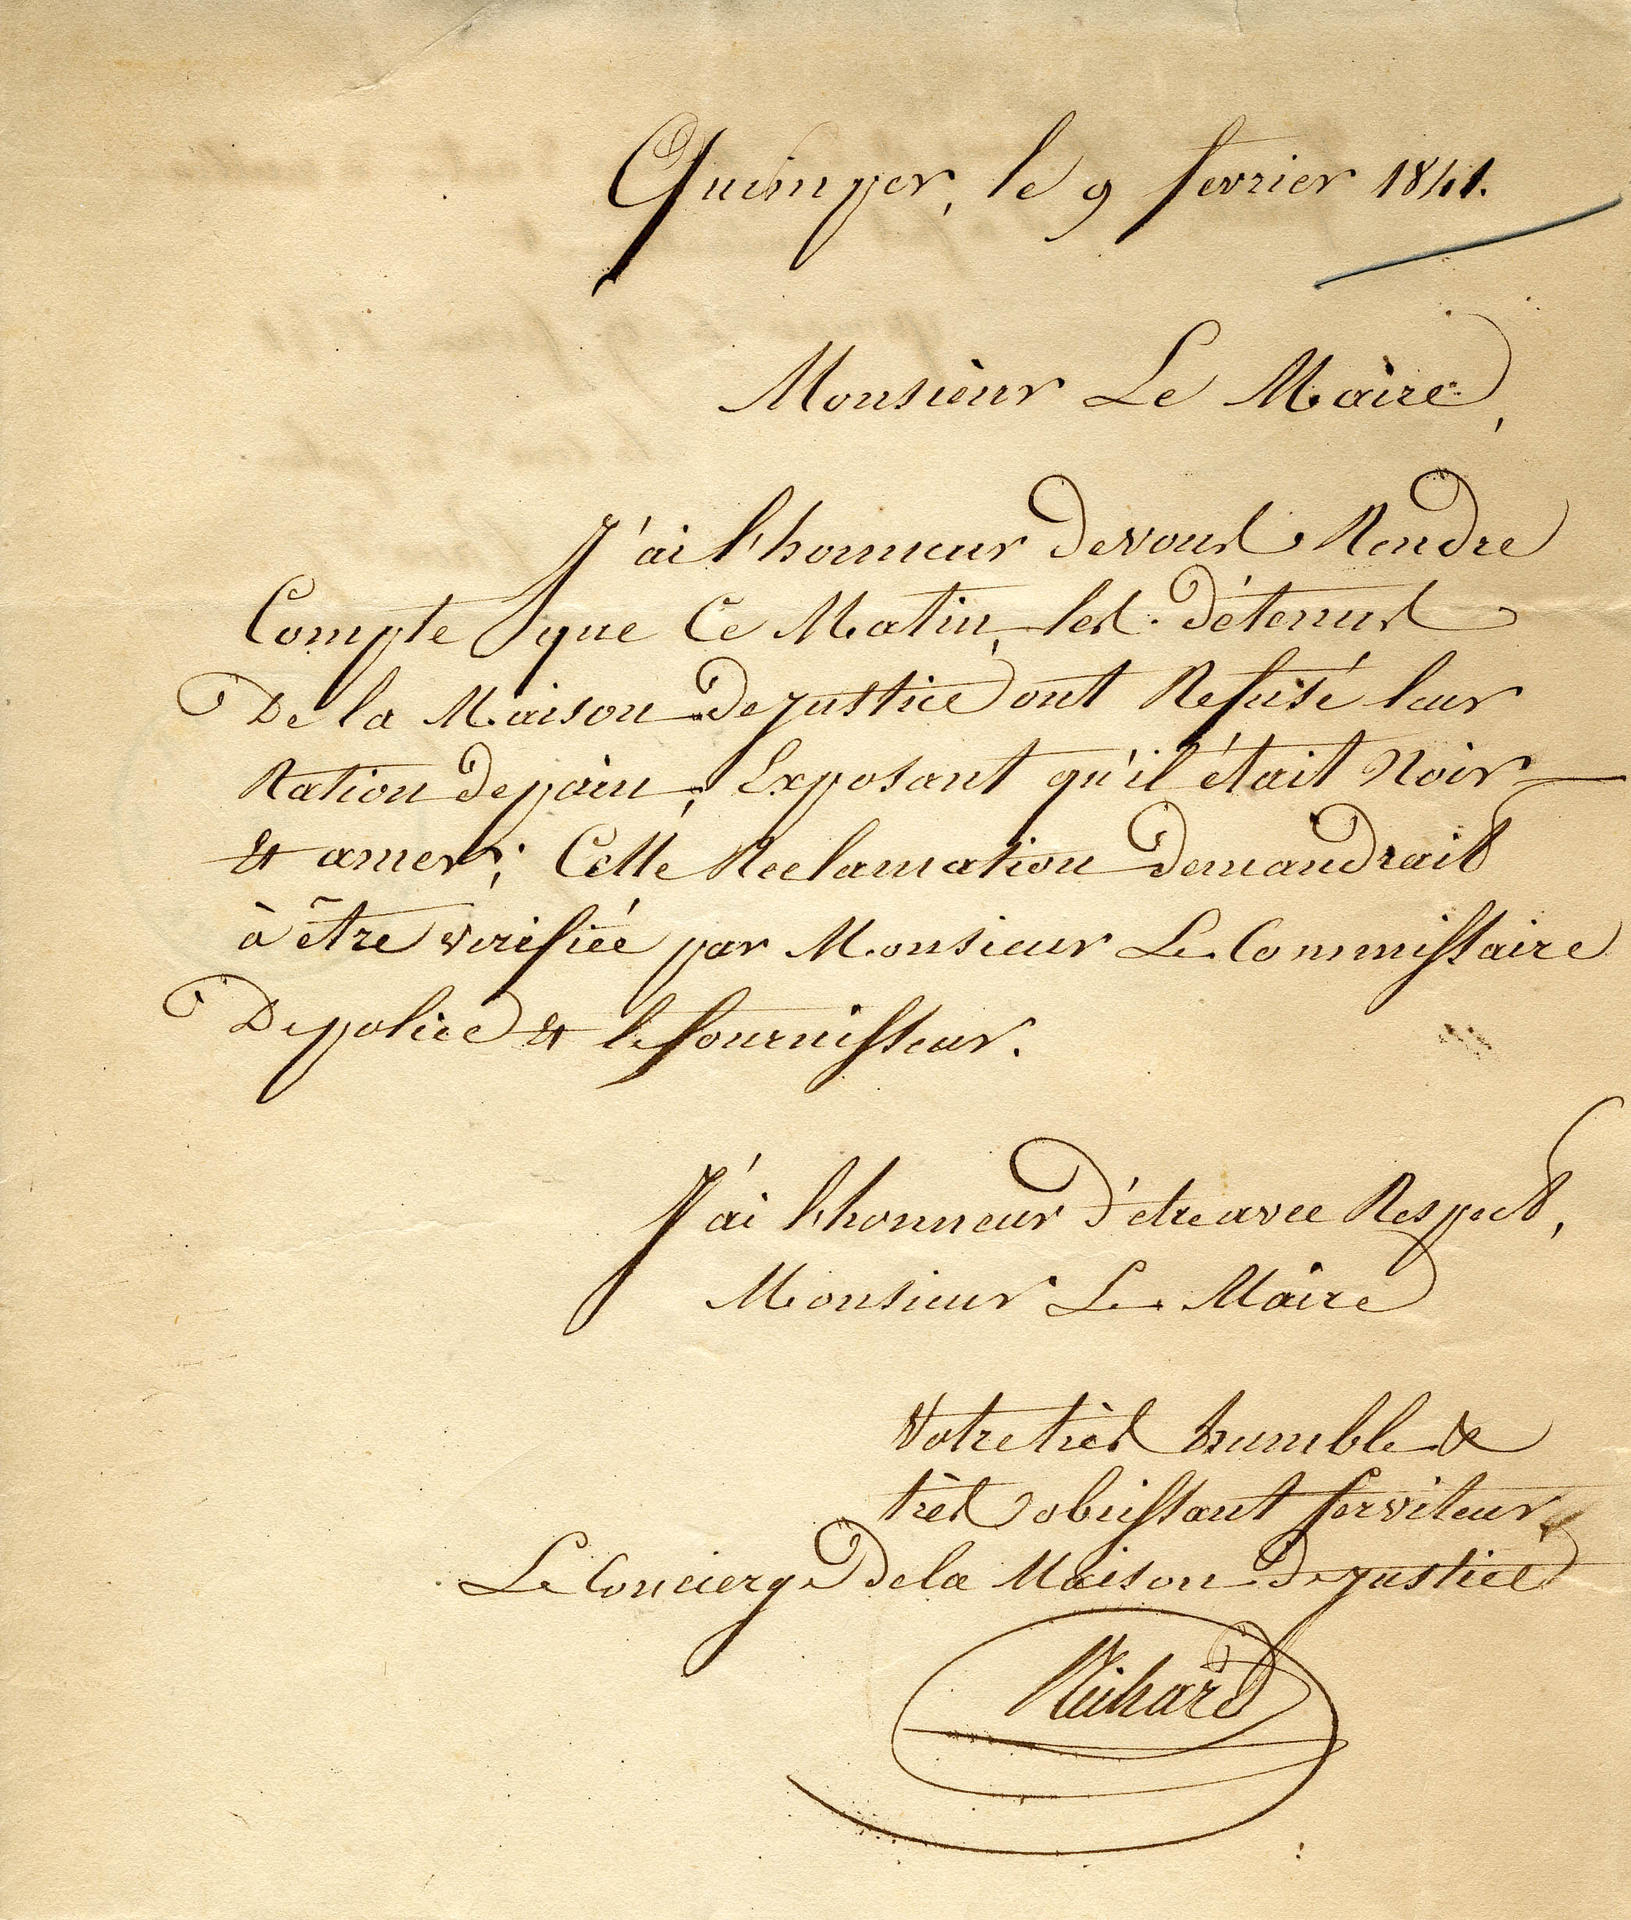 Quimper, le 9 fevrier 1841.
Monsieur Le Maire,
J'ai l'honneur de vous Rendre
Compte que Ce Matin, les détenus
De la Maison de justice ont Refusé leur
Ration de pain, Exposant qu'il était Noir
& amer; Cette Reclamation demandrait
à être verifiée par Monsieur Le Commissaire
De police & le fournisseur.
J'ai l'honneur d'etre avec Respect,
Monsieur Le Maire
Votre très humble &
très obeissant serviteur,
Le Concierge De la Maison de justice
Richard